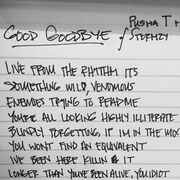 GOOD GOODBYE
PUSHA T +
of STORMZY
LIVE FROM THE RHYTHM ITS
SOMETHING WILD, VENOMOUS
ENEMIES TRYING TO READ ME
YOU'RE ALL LOOKING HIGHLY ILLITERATE
BLINDLY FORGETTING, IF IM IN THE MIX
YOU WONT FIND AN EQUIVALENT
I'VE BEEN HERE KILLIN & IT
LONGER THAN YOU'VE BEEN ALIVE, YOU IDIOT